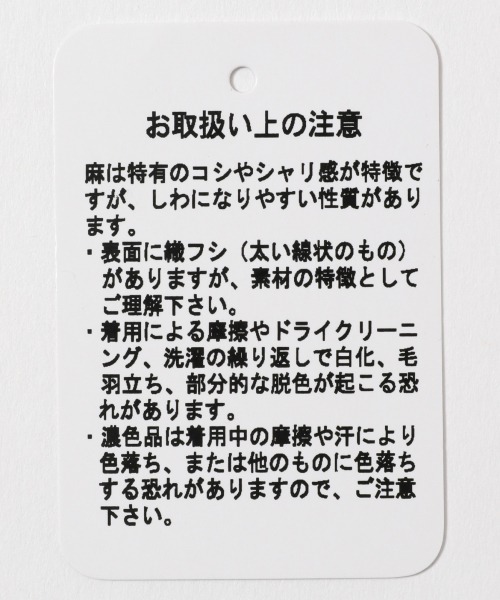 お取扱い上の注意
麻は特有のコシやシャリ感が特徴で
すが、しわになりやすい性質があり
ます。
・表面に織フシ（太い線状のもの）
がありますが、素材の特徴として
ご理解下さい。
・着用による摩擦やドライクリーニ
ング、洗濯の繰り返しで白化、毛
羽立ち、部分的な脱色が起こる恐
れがあります。
・濃色品は着用中の摩擦や汗により
色落ち、または他のものに色落ち
する恐れがありますので、ご注意
下さい。